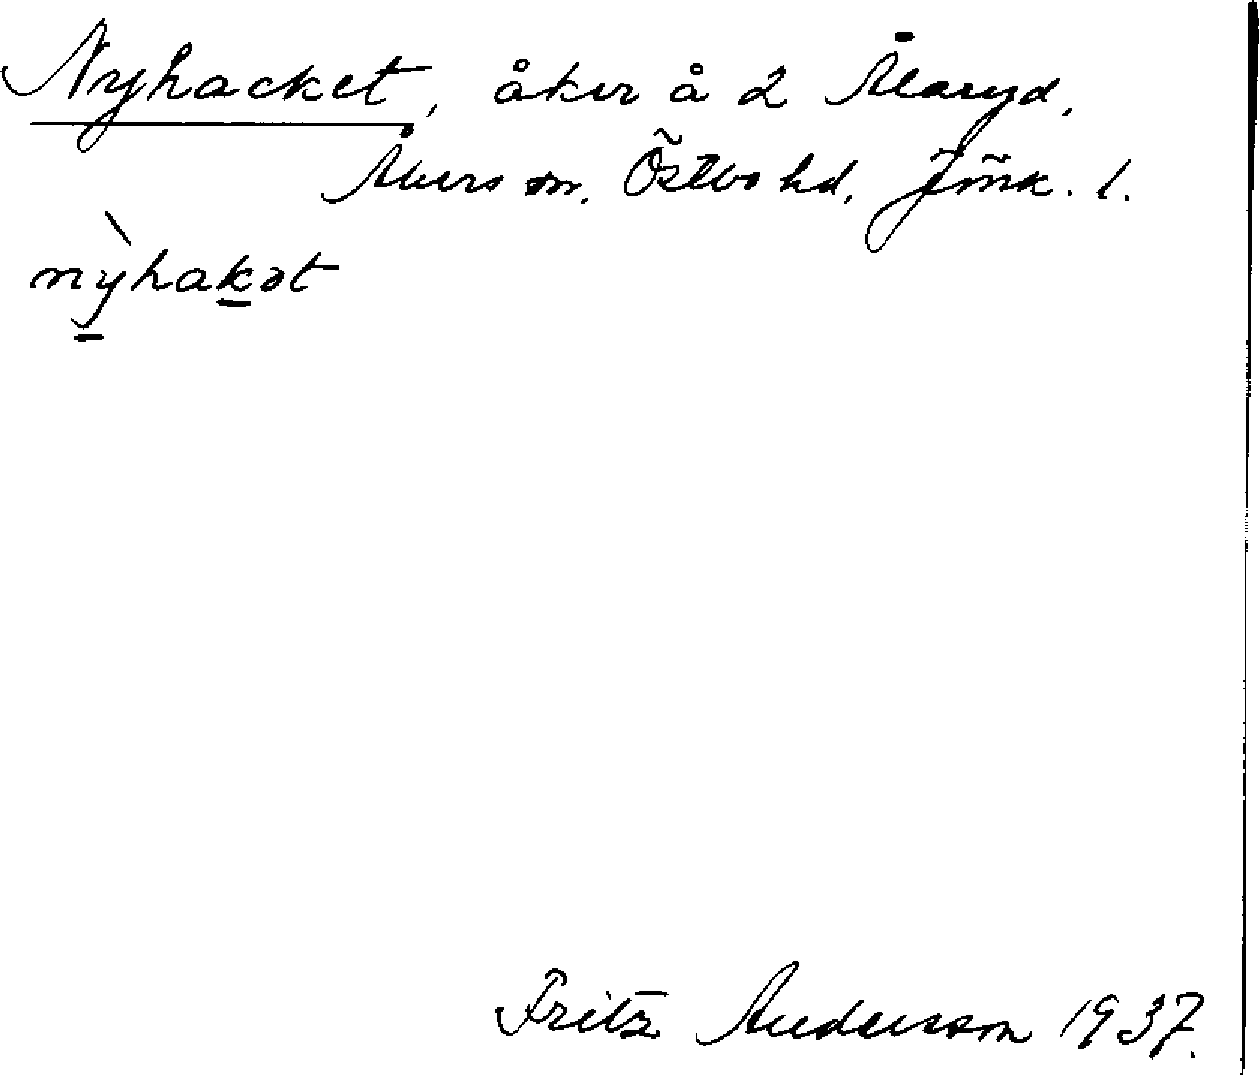 Nyhacket, åker å 2 Ålaryd,
Åkers sn, Östbo hd, Jönk. l.
nỳhakət
Fritz Anderson 1937.